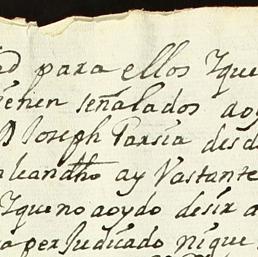 para ellos Yque
tienen señalados aoy
D Joseph Garsia desd
aleandro ay Vastante
Yque no aoydo desir a
perJudicado nique